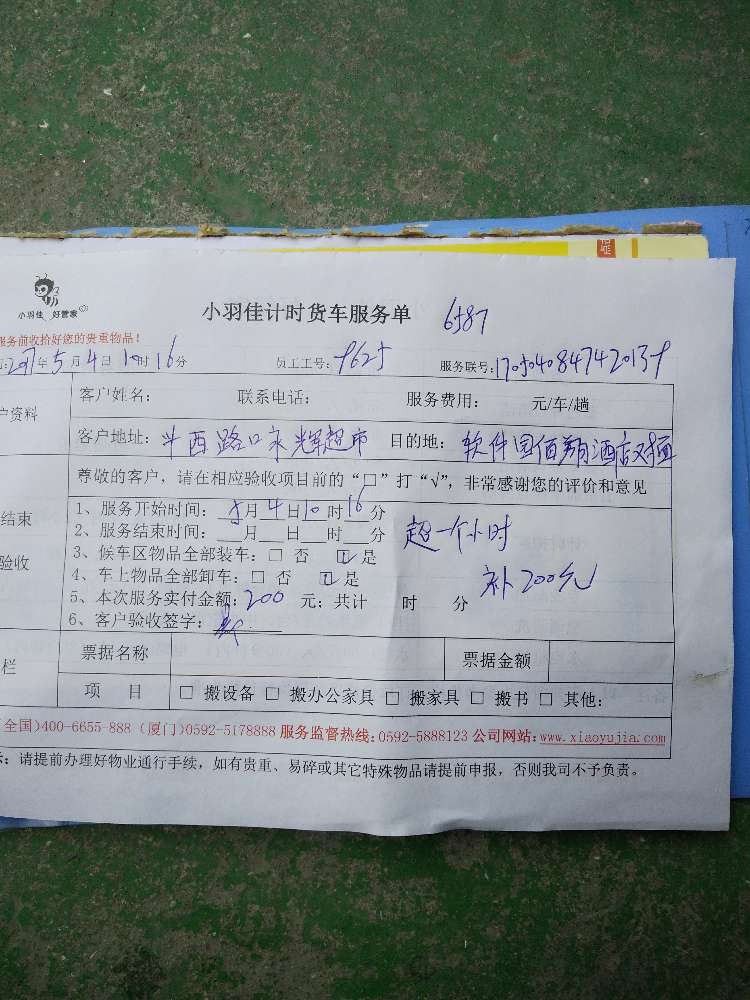 小羽佳 好管家
小羽佳计时货车服务单 6587
服务前收拾好您的贵重物品!
2017年5月4日10时16分 员工工号: 9625 服务联号: 1705040847420139
户资料 客户姓名: 联系电话: 服务费用: 元/车/趟
客户地址: 斗西路口永辉超市 目的地: 软件园佰翔酒店对面
尊敬的客户,请在相应验收项目前的“口”打“√”,非常感谢您的评价和意见
结束
验收
1、服务开始时间: 5月4日10时16分
2、服务结束时间: 月 日 时 分 超一个小时
3、候车区物品全部装车: □ 否 ☑ 是
4、车上物品全部卸车: □ 否 ☑ 是 补200元
5、本次服务实付金额: 200 元; 共计 时 分
6、客户验收签字:
栏 票据名称 票据金额
项 目 □ 搬设备 □ 搬办公家具 □ 搬家具 □ 搬书 □ 其他:
(全国)400-6655-888 (厦门)0592-5178888 服务监督热线:0592-5888123 公司网站: www.xiaoyujia.com
: 请提前办理好物业通行手续,如有贵重、易碎或其它特殊物品请提前申报,否则我司不予负责。